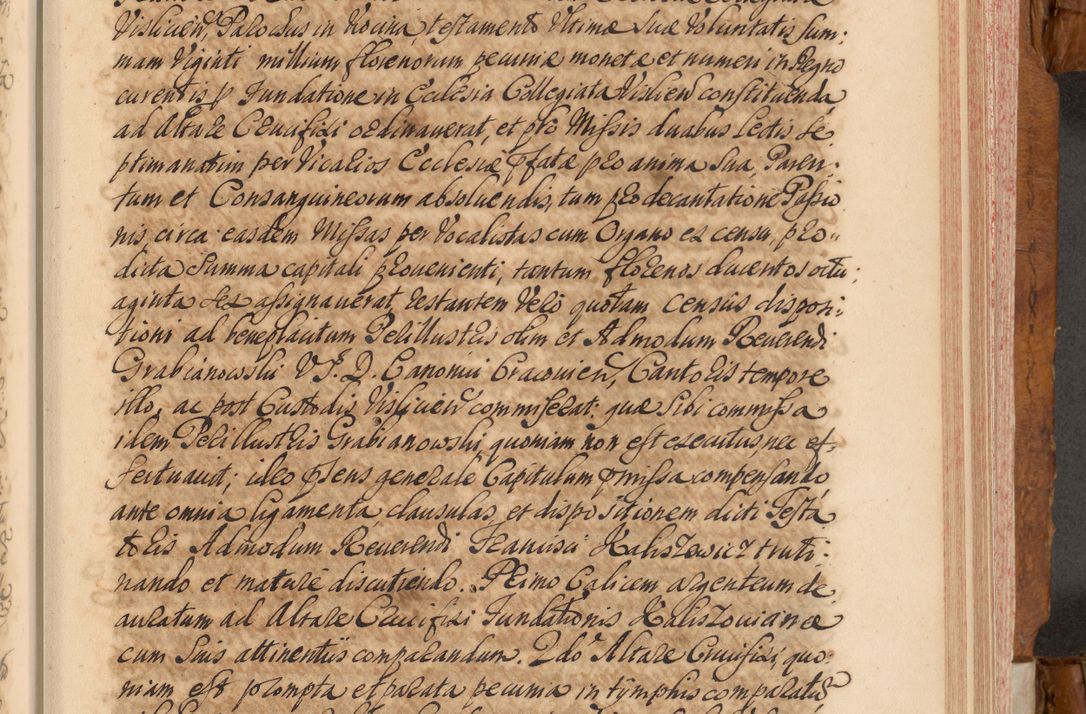 Vislicieñ, Parochus in Nocina, testamento Ultimæ Suæ Voluntatis Sum:
mam Viginti millium florenorum pecuniæ monetæ et numeri in Regno
curentis p Fundatione in Ecclesia Collegiata Visliceñ constituenda
ad Altare Crucifixi ordinauerat, et pro Missis duabus Lectis se
ptimanatim per Vicarios Ecclesiæ pfatæ pro anima Sua, Paren:
tum et Consanguineorum absoluendis, tum pro decantatione Passio
nis, circa easdem Missas per Vocalistas cum Organo ex censu, pro
dicta Summa capitali prouenienti, tantum florenos ducentos octu:
aginta sex assignauerat, restantem Vero quotam census disposi:
tioni ad beneplacitum Perillustris olim et Admodum Reuerendi
Grabianowski V.J.D. Canonici Cracouieñ, Cantoris tempore
illo, ac post Custodis Vislicieñ commiserat: quæ Sibi commissa
idem Perillustris Grabianowski, quoniam non est executus, nec ef-
fectuauit; ideo psens generale Capitulum pmissa compensando
ante omnia ligamenta, clausulas, et dispositionem dicti Testa
toris Admodum Reuerendi Francisci Kaliszewicz truti:
nando et mature discutiendo. Primo Calicem argenteum de
auratum ad Altare Crucifixi Fundationis Kaliszovianæ
cum Suis attinentiis comparandum. 2do Altare Crucifixi, quo:
niam est prompta et parata pecunia in tÿmphis comparatũ